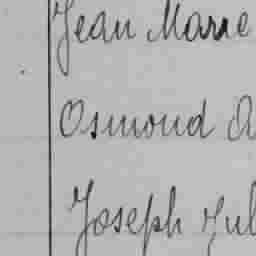 Jean Marie
Osmond A
Joseph Jul